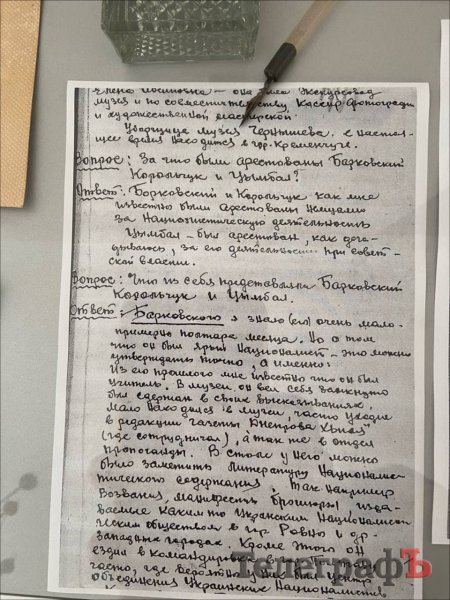 Елена Иосифовна – она была экскурсовод
музея и по совместительству кассир фотографии
и художественной мастерской.
Уборщица музея Чернышева, в настоя-
щее время находится в гор. Кременчуге.
Вопрос: За что были арестованы Барковский
Корольчук и Цымбал?
Ответ: Борковский и Корольчук как мне
известно были арестованы немцами
за Националистическую деятельность
Цымбал – был арестован, как дога-
дываюсь, за его деятельность при совет-
ской власти.
Вопрос: Что из себя представляли Барковский
Корольчук и Цымбал.
Ответ: Барковского я знаю (ем) очень мало
примерно полтора месяца. Но о том
что он был ярый националист – это можно
утверждать точно, а именно:
Из его прошлого мне известно что он был
учитель. В музеи он вел себя замкнуто
был сдержан в своих высказываниях,
мало находился в музеи, часто уходил
в редакции газеты „Днепрова Хвыля"
(где сотрудничал), а так же в отдел
пропоганды. В столе у него можно
было заметить литературу Националис-
тического содержания, так например
Воззвания, манифесты брошюры, изда-
ваемые каким то Украинским Националисти-
ческим обществом в гор Ровно и др.
западных городах. Кроме этого он
ездил в командировки в
часто, где вероятно и них был центр
объединения Украинских Националистов
ТелеграфЪ